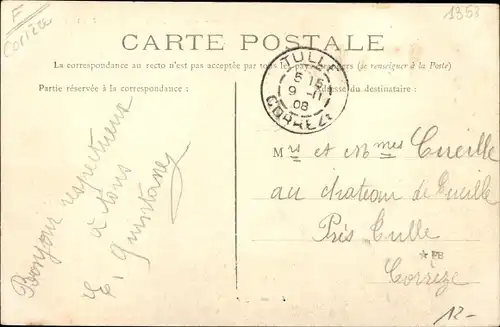 F
Corrèze
1953
CARTE POSTALE
La correspondance au recto n'est pas acceptée par tous les pays étrangers (se renseigner à la Poste)
Partie réservée à la correspondance :
Adresse du destinataire :
TULLE
5 15
9 -11
08
CORRÈZE
Bonjour respectueux
à tous
E. Quintane
Mrs et Mmes Cueille
au chateau de Cueille
Près Tulle
*FB
Corrèze
12-